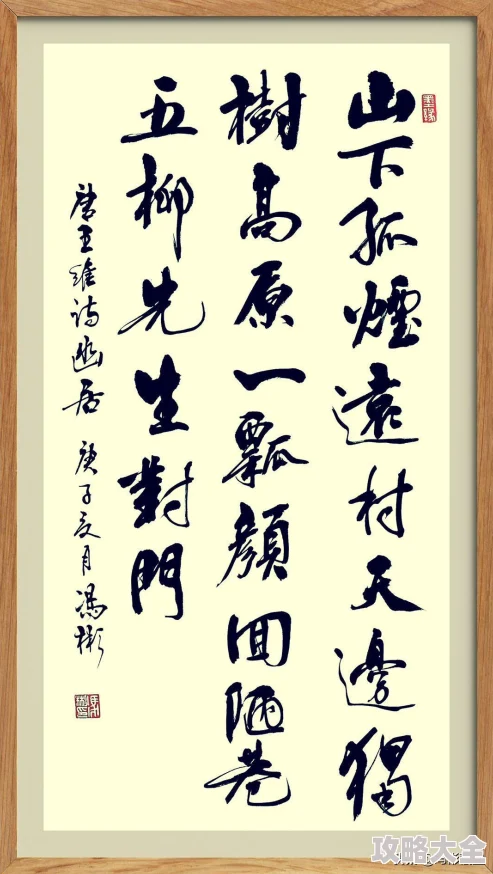 山下孤煙遠村天邊獨
樹高原一瓢顏回陋巷
五柳先生對門
唐王維詩幽居 庚子夏月馮彬
攻略大全